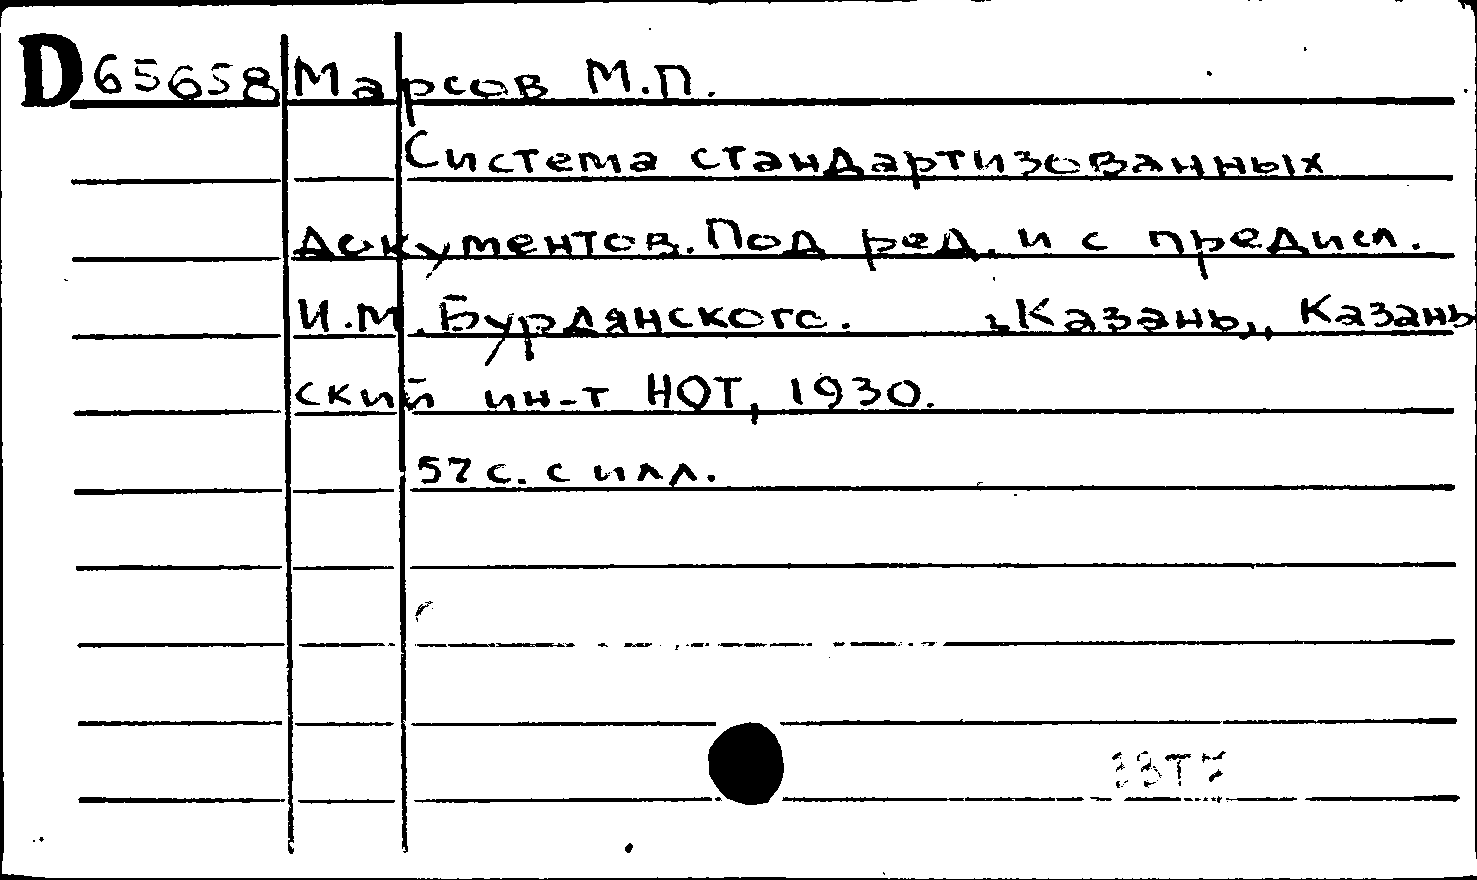 D65658 Марсов М.П.
Система стандартизованных
документов. Под ред. и с предисл.
И.М. Бурдянского. Казань, Казань
ский ин-т НОТ, 1930.
57 с. с илл.
33Т7